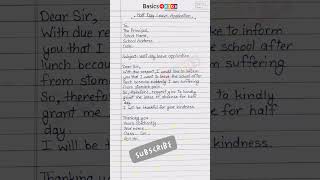 Basics
Half Day Leave Application
To,
The Principal,
School Name,
School Address.
Date:
Subject:- Half day leave application
Dear Sir,
With due respect, I would like to inform
you that I want to leave the school after
lunch because suddenly I am suffering
from stomach pain.
So, therefore I request you to kindly
grant me leave of absence for half
day.
I will be thankful for your kindness.
Thanking you
Yours obediently
Your name
Class
Roll no.
SUBSCRIBE
Dear Sir,
With due re
you that I
lunch becau
from stoma
So, therefo
grant me
day.
I will be
Thanking you
like to inform
school after
suffering
to kindly
for half
kindness.